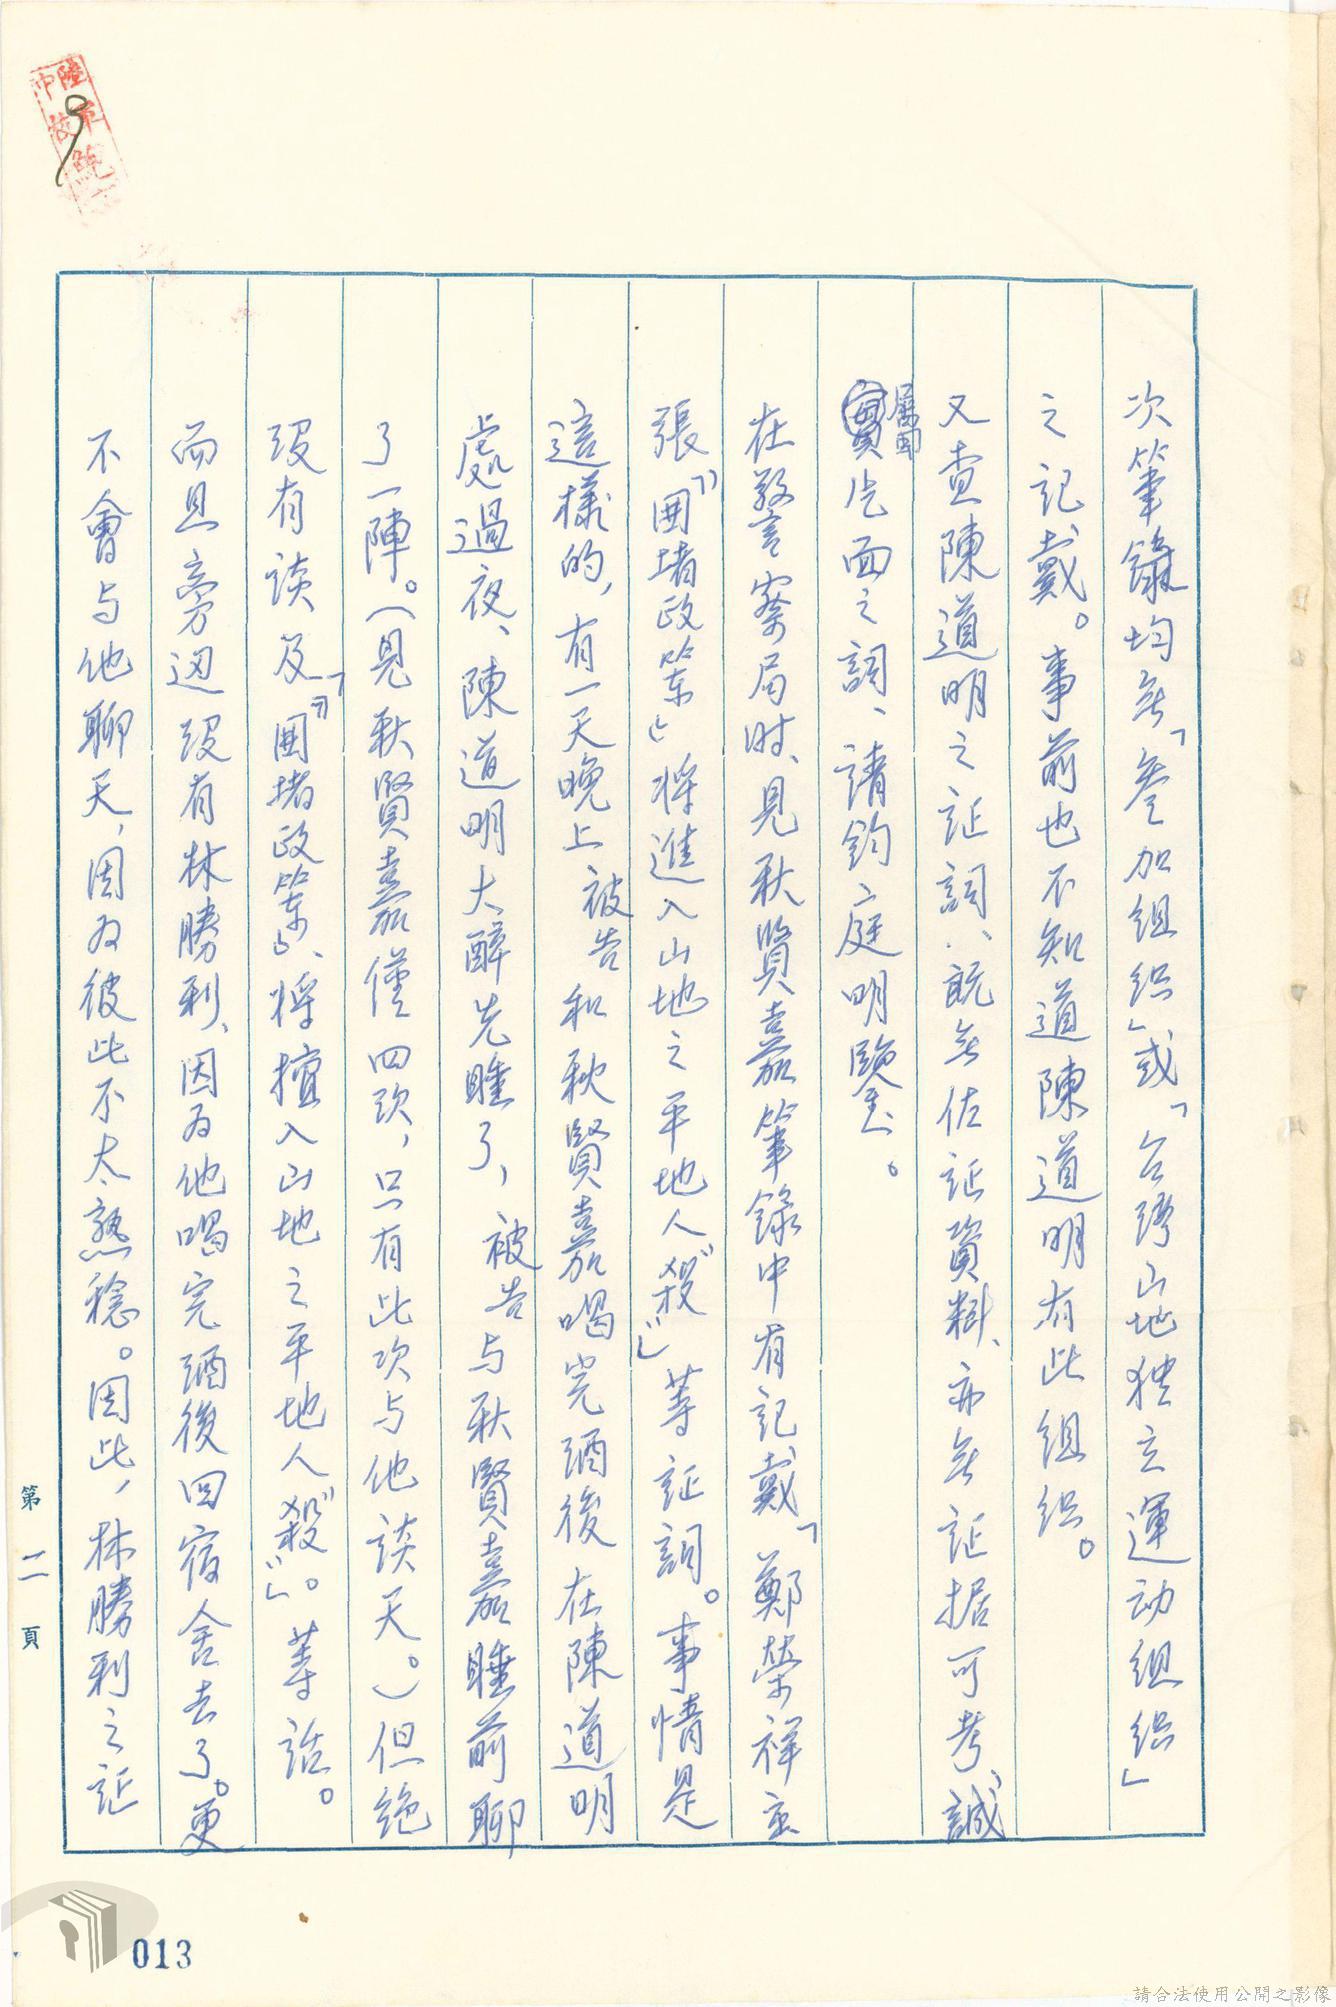 次筆錄均无「參加組织」或「台灣山地独立運动組织」
之記戴。事前也不知道陳道明有此組织。
又查陳道明之証詞、既无佐証資料、亦无証据可考、誠
屬
實片面之詞、請鈞庭明鑒。
在警察局时、見秋賢嘉筆錄中有記戴「鄭榮祥主
張『围堵政策』將進入山地之平地人"殺"」等証詞。事情是
這樣的，有一天晚上被告和秋賢嘉喝完酒後在陳道明
處過夜、陳道明大醉先睡了，被告与秋賢嘉睡前聊
了一陣。(見秋賢嘉僅四次，只有此次与他談天。)但绝
没有談及「『围堵政策』、將擅入山地之平地人"殺"」。等話。
而且旁边没有林勝利、因为他喝完酒後回宿舍去了。更
不會与他聊天，因为彼此不太熟稔。因此，林勝利之証
第二頁
013
請合法使用公開之影像